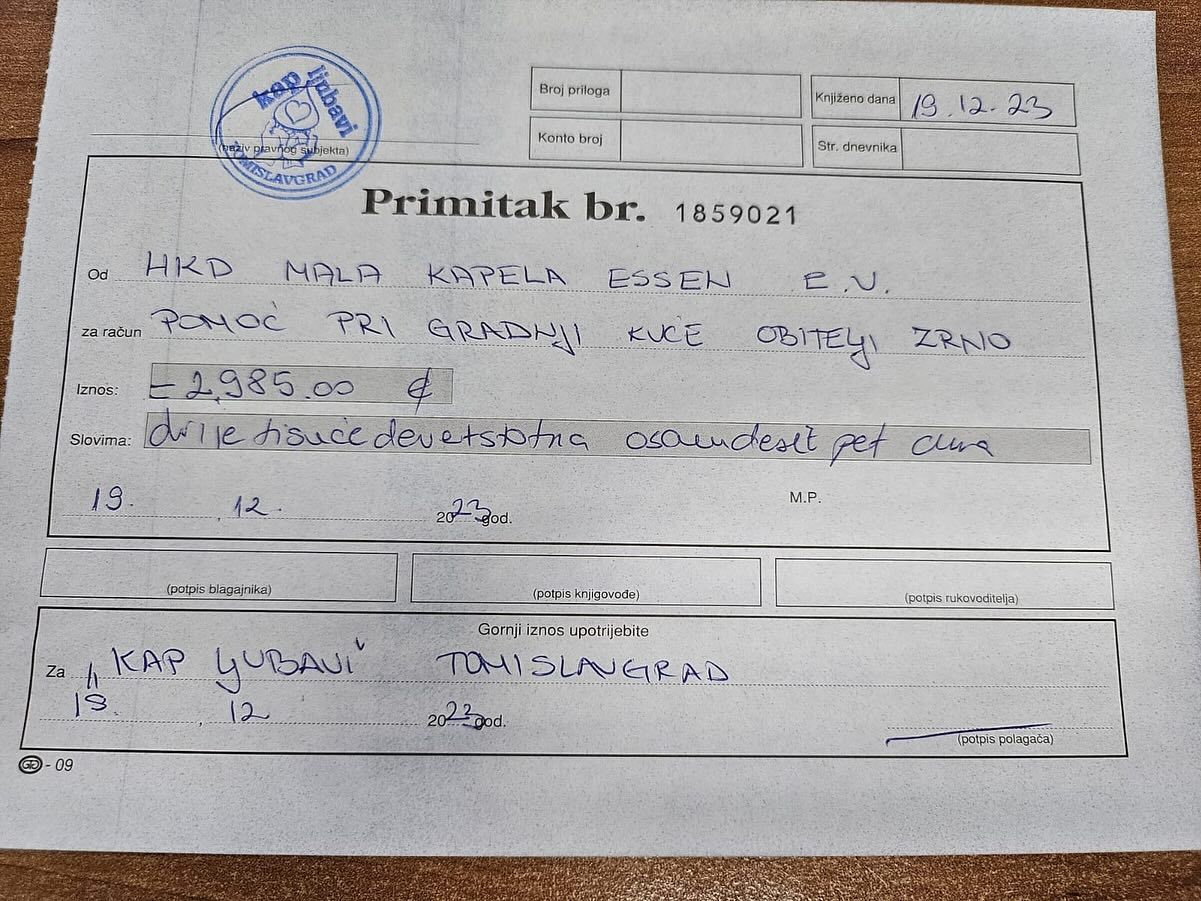 kap ljubavi
(naziv pravnog subjekta)
TOMISLAVGRAD
Broj priloga
Knjiženo dana 19.12.23
Konto broj
Str. dnevnika
Primitak br. 1859021
Od HKD MALA KAPELA ESSEN E.V.
za račun POMOĆ PRI GRADNJI KUĆE OBITELJI ZRNO
Iznos: = 2,985.00 €
Slovima: dvije tisuće devetstotna osamdeset pet eura
19. , 12. 2023 god.
M.P.
(potpis blagajnika)
(potpis knjigovođe)
(potpis rukovoditelja)
Gornji iznos upotrijebite
Za "KAP LJUBAVI" TOMISLAVGRAD
19. , 12 2023 god.
(potpis polagača)
- 09